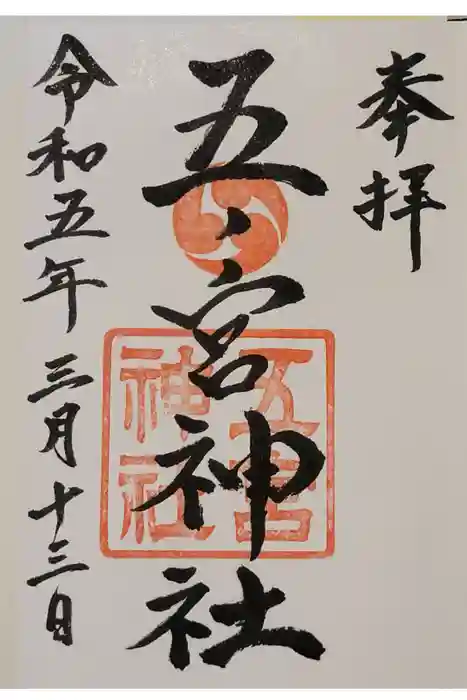 奉拝
五宮神社
五宮
神社
令和五年三月十三日